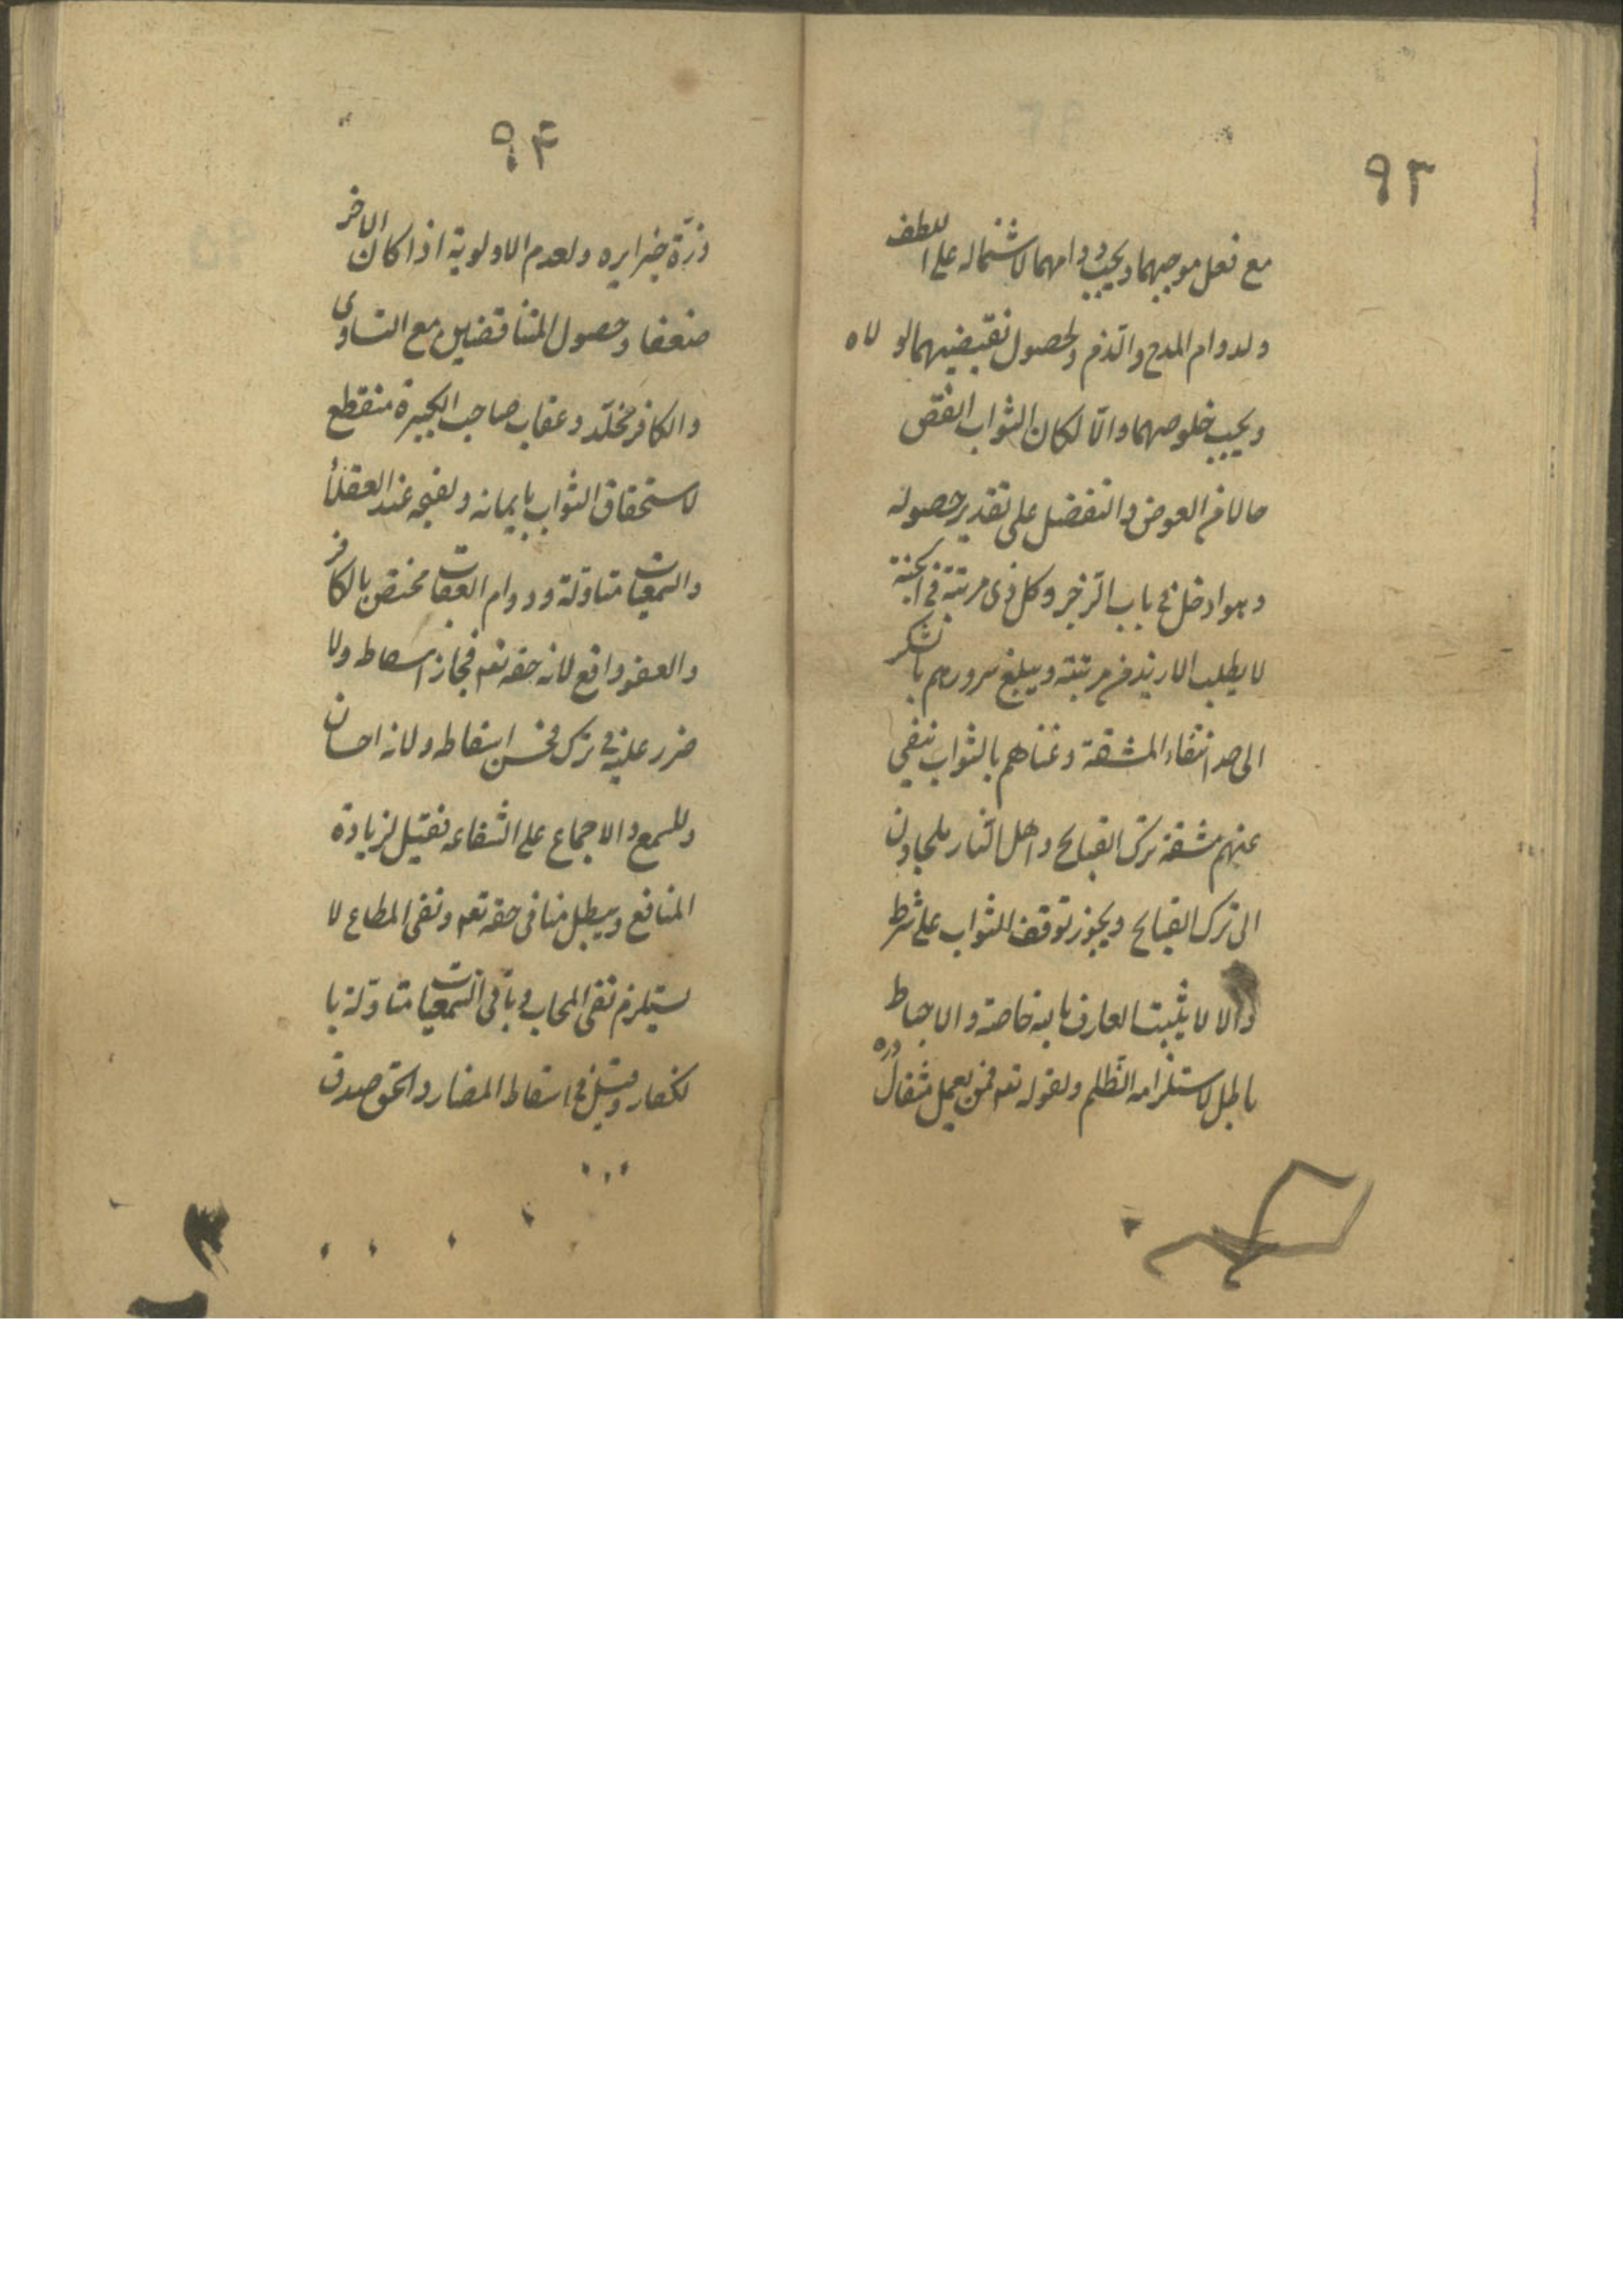 ٩٣
مع فعل موجبهما ويجب دوامهما لاشتماله على اللطف
ولدوام المدح والذم ولحصول نقيضيهما لو لاه
ويجب خلوصهما والّا لكان الثواب انقص
حالا من العوض والتفضل على تقدير حصوله
وهو ادخل فى باب الزجر وكل ذى مرتبة فى الجنة
لا يطلب الازيد من مرتبته ويبلغ سرورهم بالشكر
الى حد انتفاء المشقة وغناهم بالثواب ينفي
عنهم مشقة ترك القبايح واهل النار ملجاون
الى ترك القبايح ويجوز توقف الثواب على شرط
والا لا يثبت العارف بالله خاصة والاحباط
باطل لاستلزامه الظلم ولقوله تعه فمن يعمل مثقال ذره
٩٤
ذرّة خيرا يره ولعدم الاولوية اذا كان الاخر
ضعفا وحصول المتناقضين مع التساوى
والكافر مخلّد وعقاب صاحب الكبيرة منقطع
لاستحقاق الثواب بايمانه ولقبحه عند العقلأ
والسمعيات متاولة ودوام العقاب مختص بالكافر
والعفو واقع لانه حقه تعه فجاز اسقاطه ولا
ضرر عليه فى تركه فحسن اسقاطه ولانه احسان
وللسمع والاجماع على الشفاعه فقيل لزيادة
المنافع ويبطل منا فى حقه تعه ونفى المطاع لا
يستلزم نفى المجاب وباقى السمعيات متاولة با
لكفار وقيل فى اسقاط المضار والحق صدق